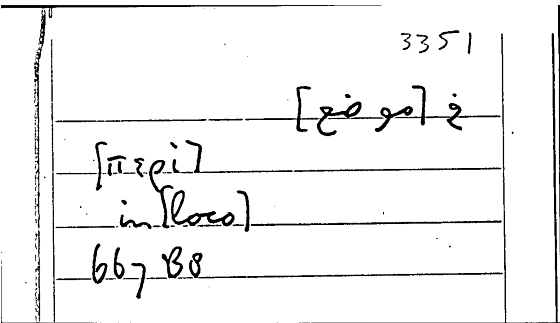 3351
في [موضع]
[περὶ]
in [loco]
667 B8